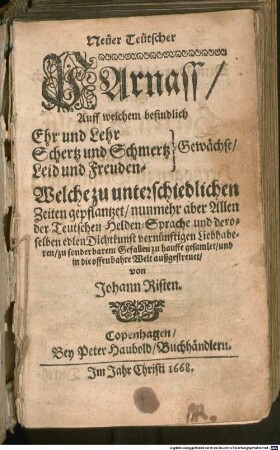 Neuer Teutscher
PArnass/
Auff welchem befindlich
Ehr und Lehr
Schertz und Schmertz
Leid und Freuden-
Gewächse/
Welche zu unterschiedlichen
Zeiten gepflantzet/ nunmehr aber Allen
der Teutschen Helden-Sprache und dero-
selben edlen Dichtkunst vernünftigen Liebhabe-
ren/ zu sonderbarem Gefallen zu hauffe gesamlet/ und
in die offenbahre Welt außgestreuet/
von
Johann Risten.
Copenhagen/
Bey Peter Haubold/ Buchhändlern.
Im Jahr Christi 1668.